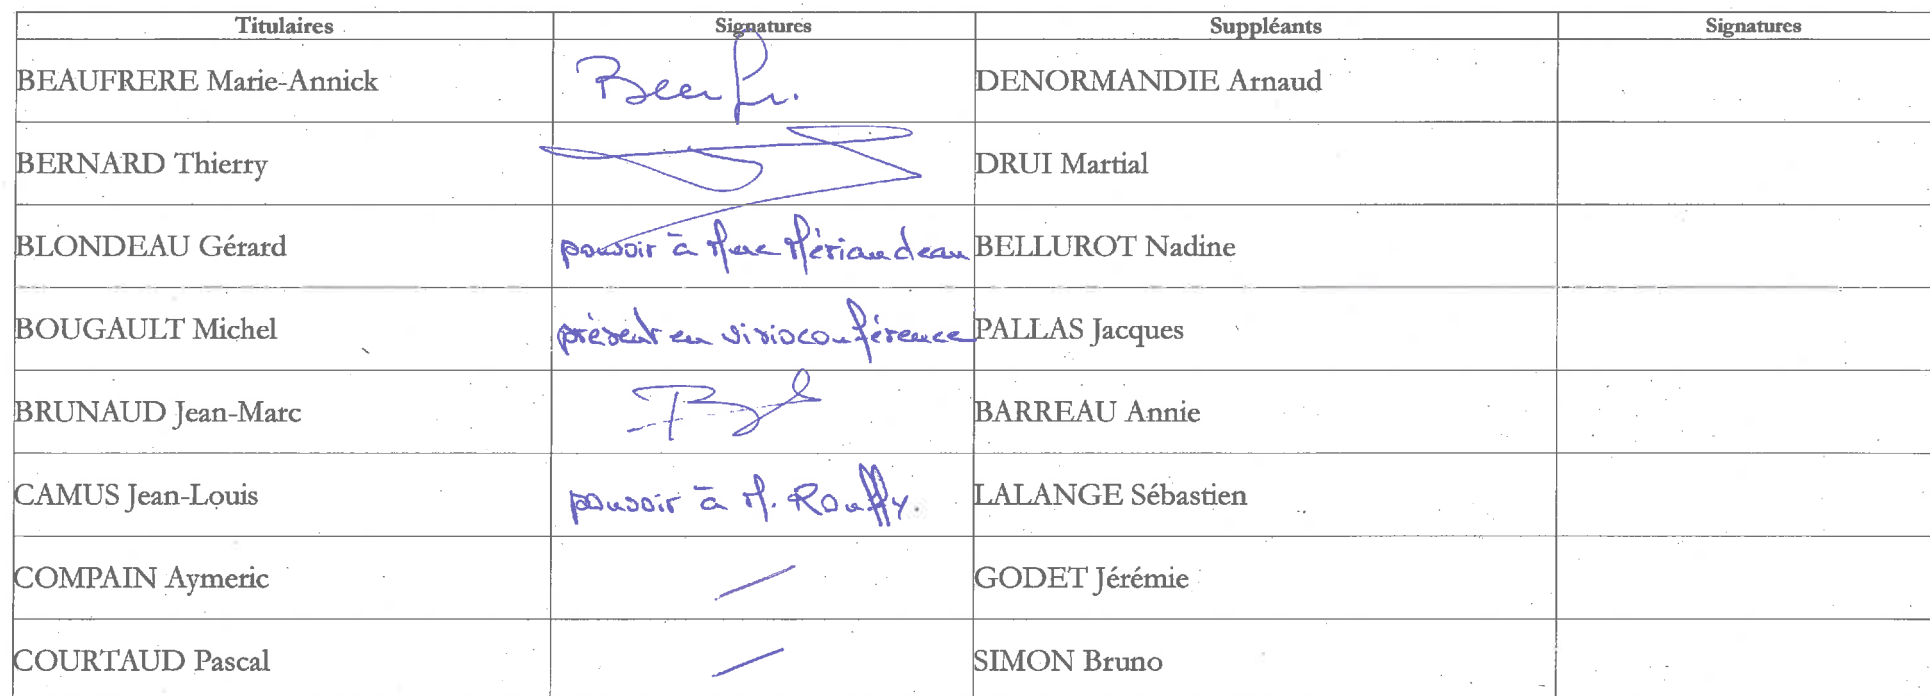 Titulaires Signatures Suppléants Signatures
BEAUFRERE Marie-Annick DENORMANDIE Arnaud
BERNARD Thierry DRUI Martial
BLONDEAU Gérard pouvoir à Mériaudeau BELLUROT Nadine
BOUGAULT Michel présent en visioconférence PALLAS Jacques
BRUNAUD Jean-Marc BARREAU Annie
CAMUS Jean-Louis pouvoir à M. Rouffy. LALANGE Sébastien
COMPAIN Aymeric GODET Jérémie
COURTAUD Pascal SIMON Bruno